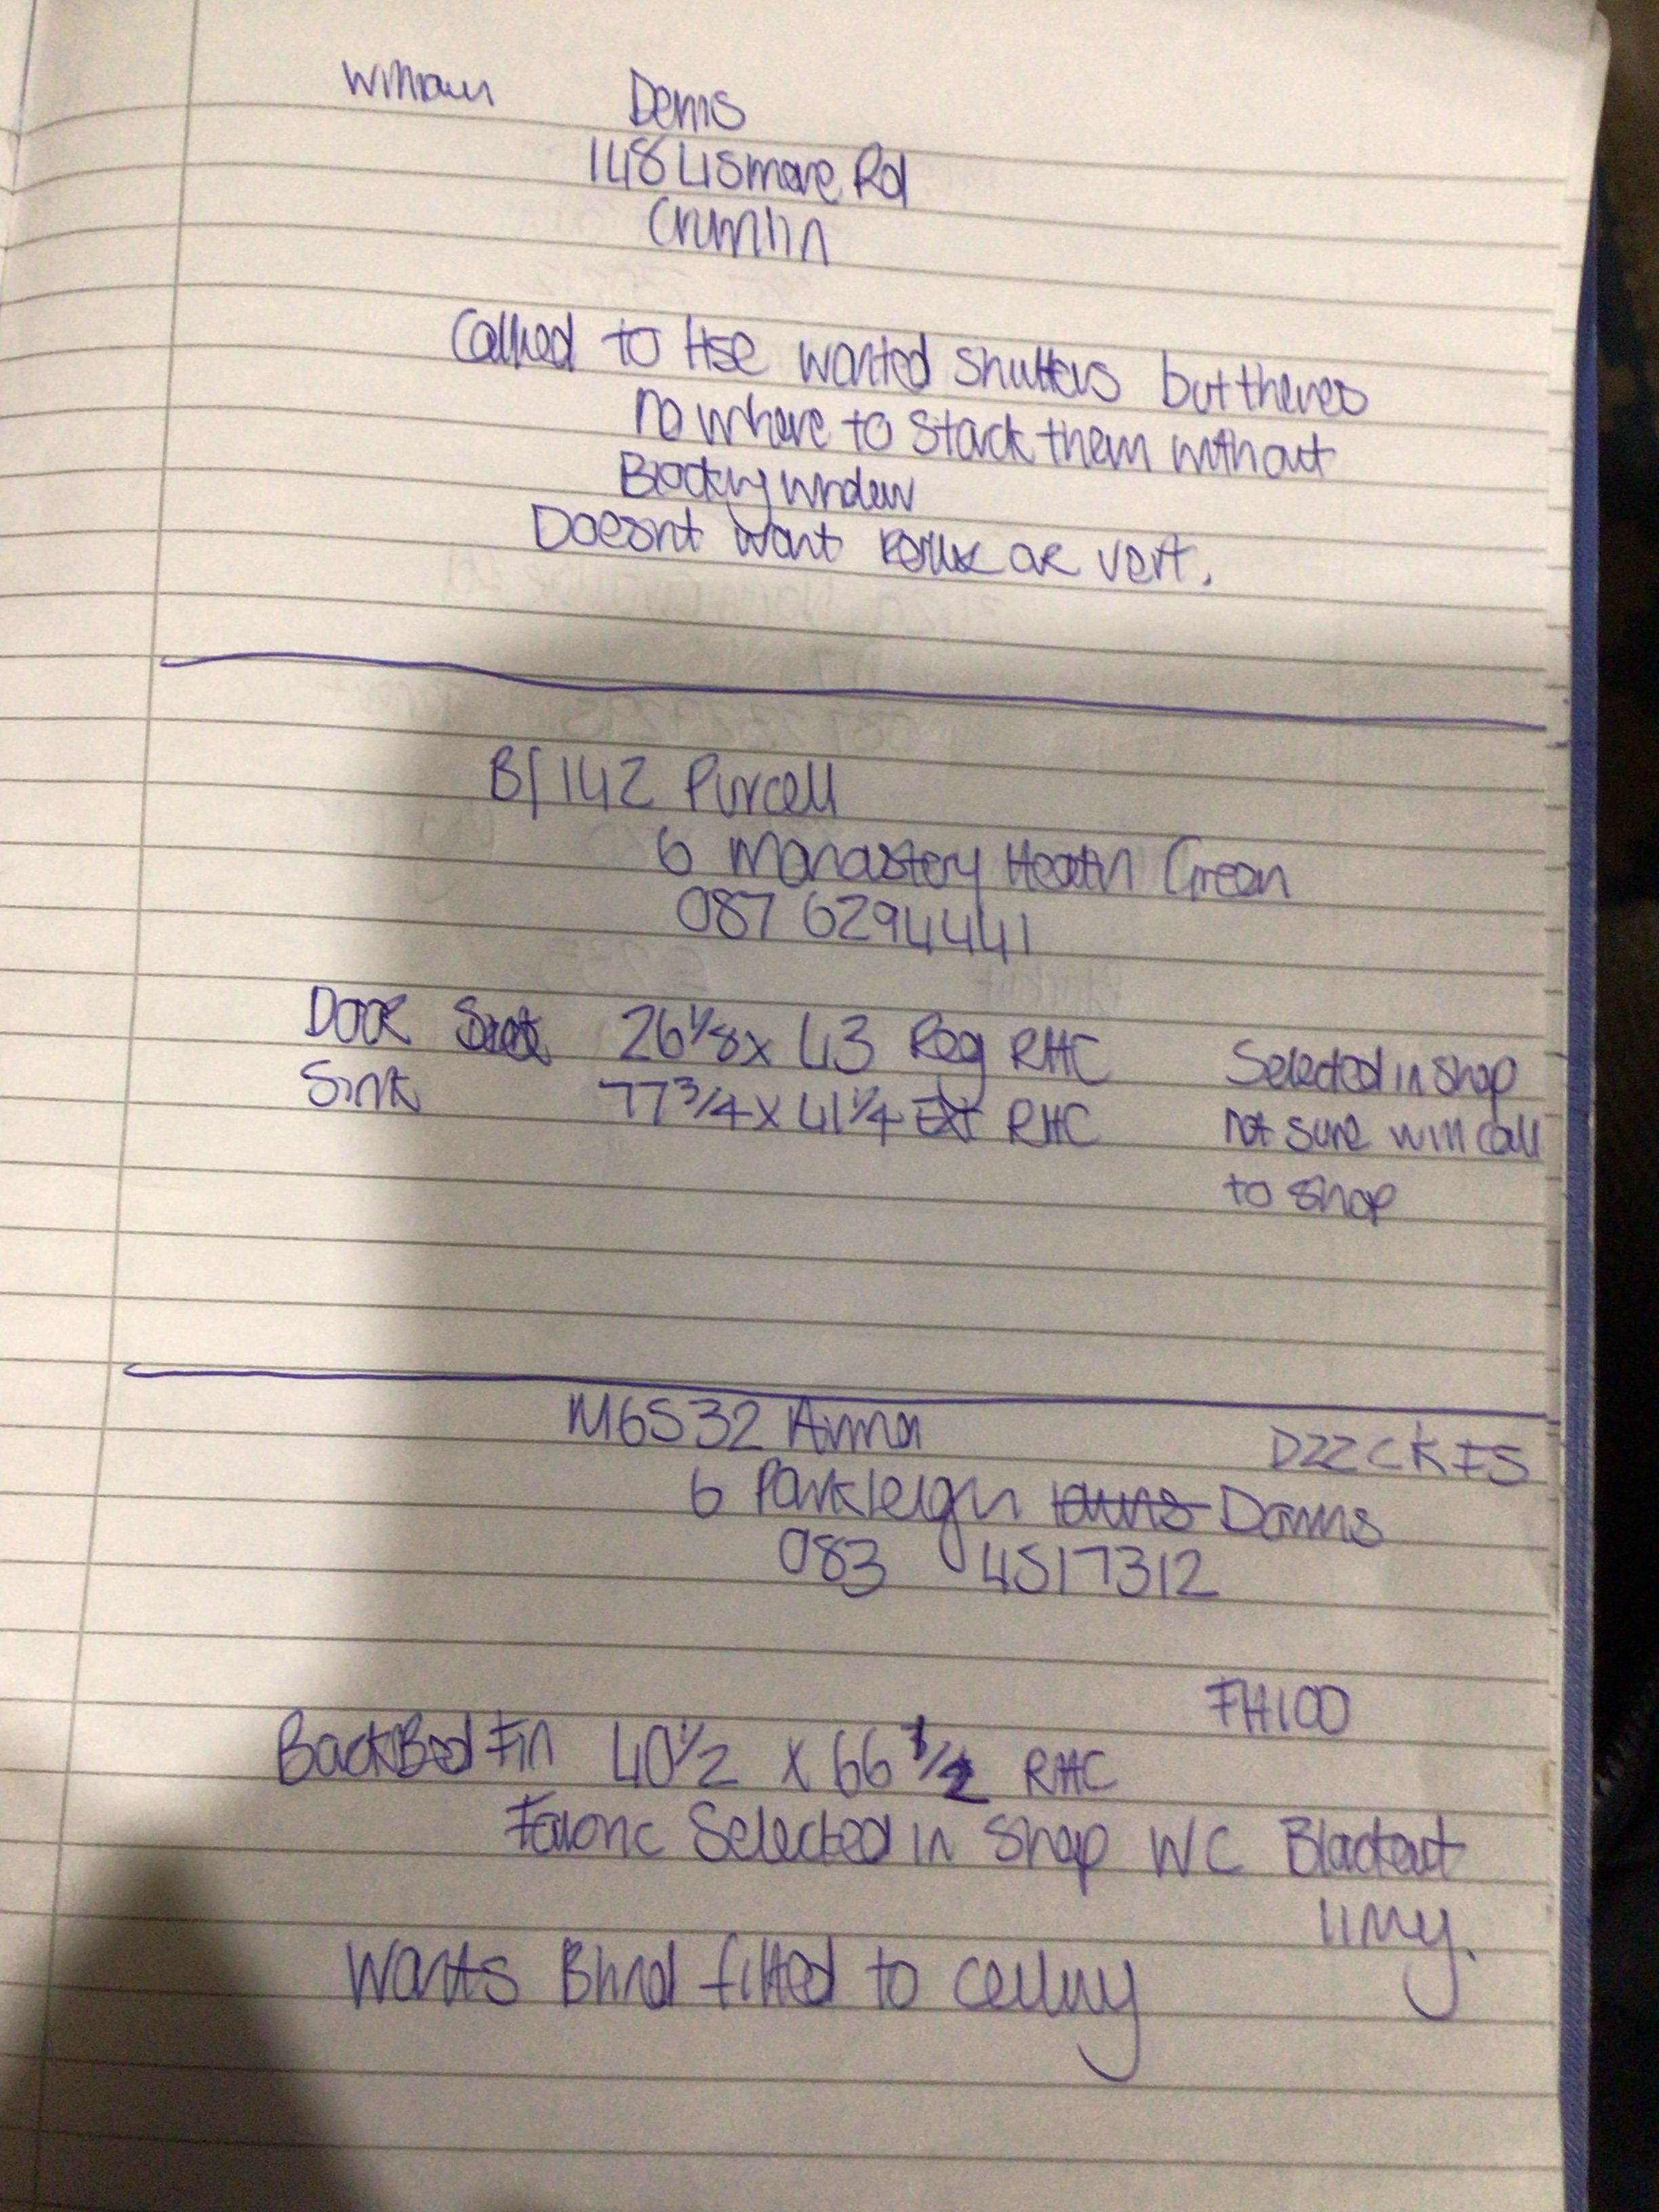 William Denis
148 Lismore Rd
Crumlin
Called to Hse wanted shutters but theres
no where to stack them without
Blocking window
Doesnt want roller or vert.
B/142 Purcell
6 Monastery Heath Green
087 6294441
Door 26 1/8 x 43 Reg RHC Selected in shop
Sink 77 3/4 x 41 1/4 Ext RHC not sure will call
to shop
M6532 Anna D22CKF5
6 Parkleigh towns Downs
083 4517312
FH100
Back Bed Fin 40 1/2 x 66 1/2 RHC
Fabric Selected in Shop WC Blackout
lining.
Wants Blind fitted to ceiling